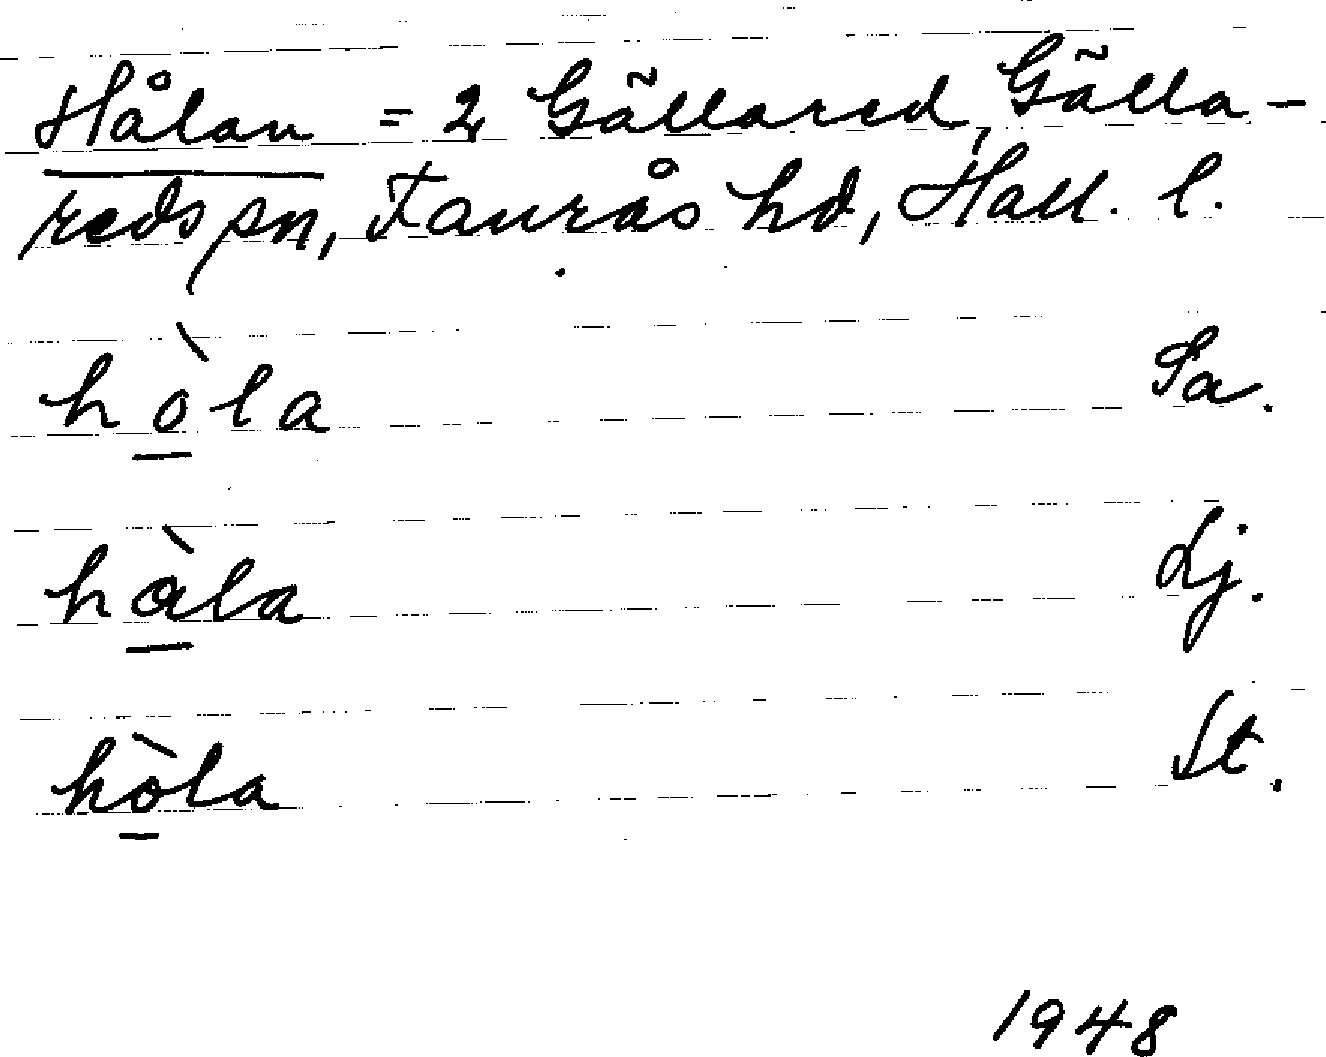 Hålan = 2 Gällared, Gälla-
reds sn, Faurås hd, Hall. l.
hò̱la Sa.
hà̱la Lj.
hò̱la St.
1948